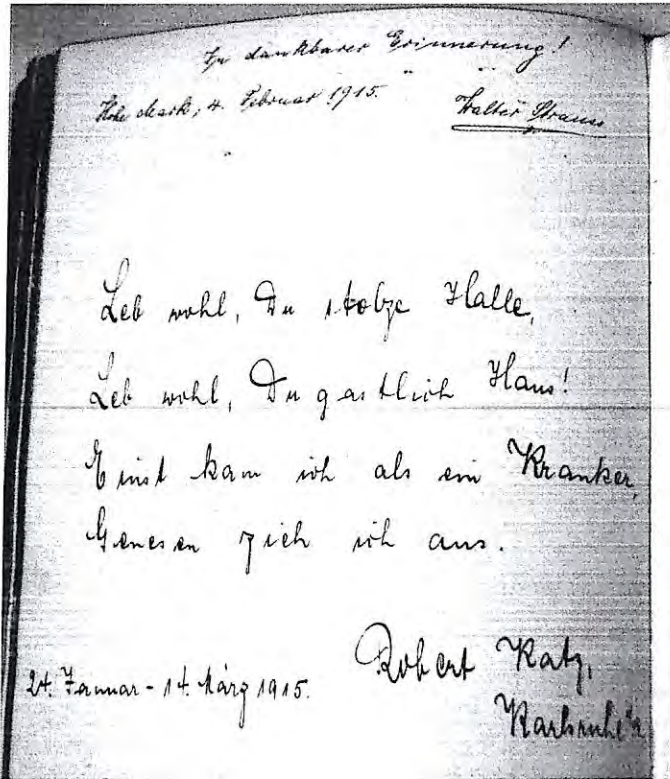 In dankbarer Erinnerung!
Hohe Mark, 4. Februar 1915.
Walter Strauss
Leb wohl, Du stolze Halle,
Leb wohl, Du gastlich Haus!
Einst kam ich als ein Kranker,
Genesen zieh ich aus.
Robert Katz,
24. Januar - 14. März 1915.
Karlsruhe